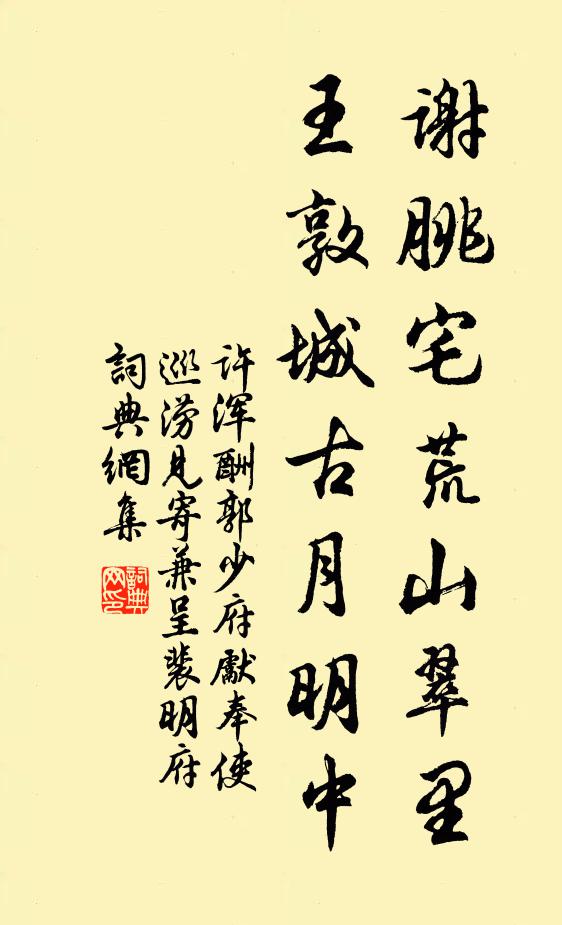 谢朓宅荒山翠里
王敦城古月明中
许浑酬郭少府獻奉使
巡涝見寄兼呈裴明府
詞典網集
詞典网印